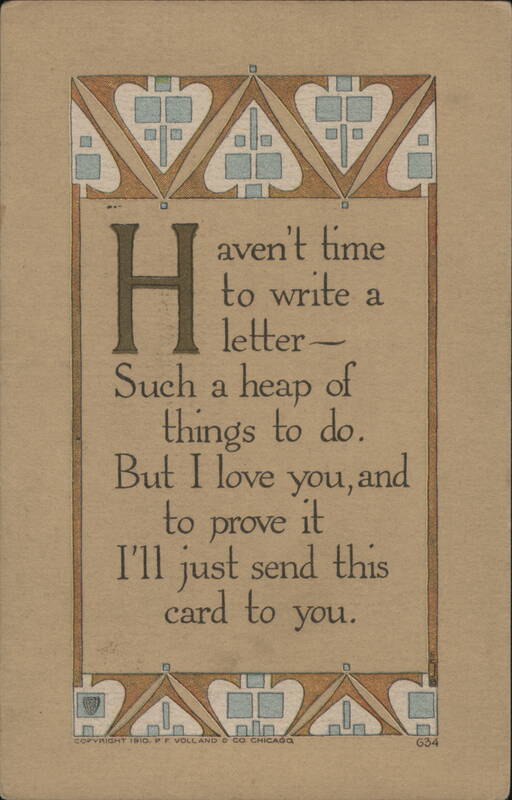 Haven't time
to write a
letter—
Such a heap of
things to do.
But I love you, and
to prove it
I'll just send this
card to you.
COPYRIGHT 1910, P. F. VOLLAND & CO. CHICAGO.
634